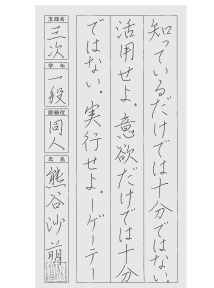 知っているだけでは十分ではない。
活用せよ。意欲だけでは十分
ではない。実行せよ。ーゲーテー
支部名
三次
学年
一般
段級位
同人
氏名
熊谷沙萠